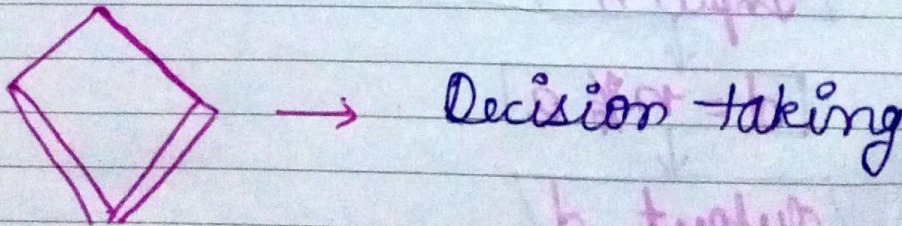 Decision taking